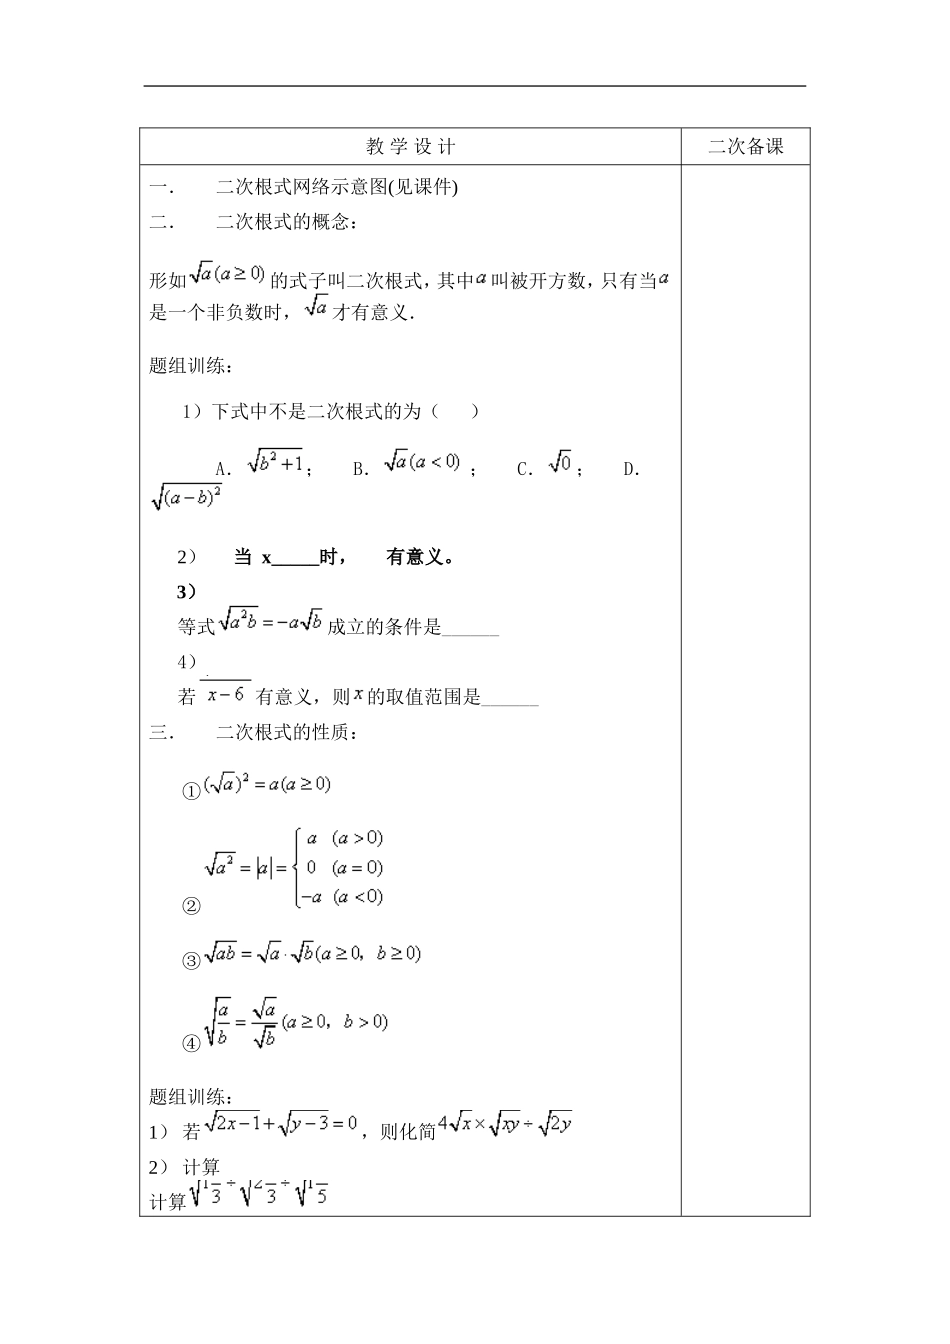 教 学 设 计
二次备课
一. 二次根式网络示意图(见课件)
二. 二次根式的概念:
形如√a(a≥0)的式子叫二次根式,其中a叫被开方数,只有当a
是一个非负数时,√a才有意义.
题组训练:
1)下式中不是二次根式的为( )
A. √(b²+1); B. √a(a<0) ; C. √0 ; D.
√((a−b)²)
2) 当 x_____时, 有意义。
3)
等式√(a²b)=−a√b成立的条件是______
4)
若 x−6 有意义,则x的取值范围是______
三. 二次根式的性质:
①(√a)²=a(a≥0)
②√(a²)=|a|={a (a>0) 0 (a=0) −a (a<0)
③√(ab)=√a·√b(a≥0, b≥0)
④√(a/b)=√a/√b(a≥0, b>0)
题组训练:
1) 若√(2x−1)+√(y−3)=0,则化简4√x×√(xy)÷√(2y)
2) 计算
计算